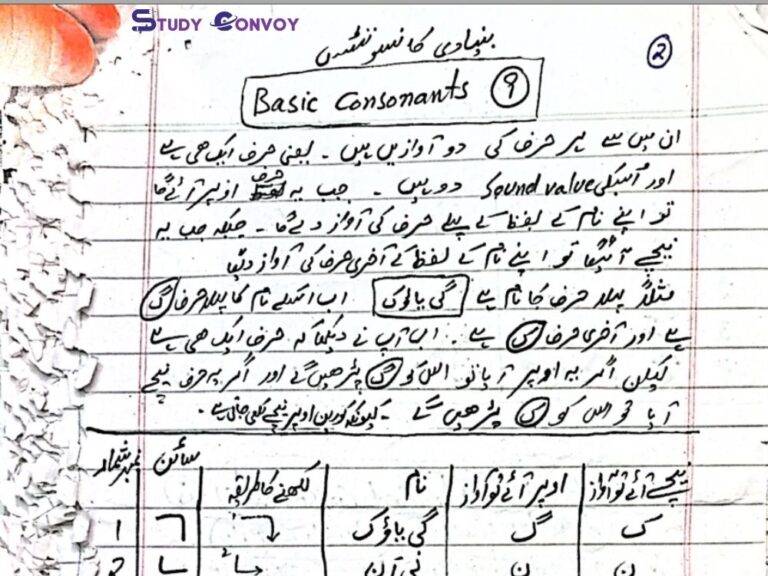 STUDY CONVOY
بنیادی کانسوننٹس
2
Basic Consonants 9
ان میں سے ہر حرف کی دو آوازیں ہیں ۔ یعنی حرف ایک ھی ہے
اور اُسکی Sound value دو ہیں ۔ جب یہ حرف اوپر آئے گا
تو اپنے نام کے لفظ کے پہلے حرف کی آواز دے گا ۔ جبکہ جب یہ
نیچے آئیگا تو اپنے نام کے لفظ کے آخری حرف کی آواز دیگا
مثلاً پہلا حرف کا نام ہے گی یاؤک اب اسکے نام کا پہلا حرف گ
ہے اور آخری حرف ک ہے ۔ اب آپ نے دیکھا کہ حرف ایک ھی ہے
لیکن اگر یہ اوپر آیا تو اس کو گ پڑھیں گے اور اگر یہ حرف نیچے
آیا تو اس کو ک پڑھیں گے ۔ کیونکہ کورین اوپر نیچے لکھی جاتی ہے ۔
نمبر شمار سائن لکھنے کا طریقہ نام اوپر آئے تو آواز نیچے آئے تو آواز
1 ㄱ گی یاؤک گ ک
2 ㄴ نی اُن ن ن